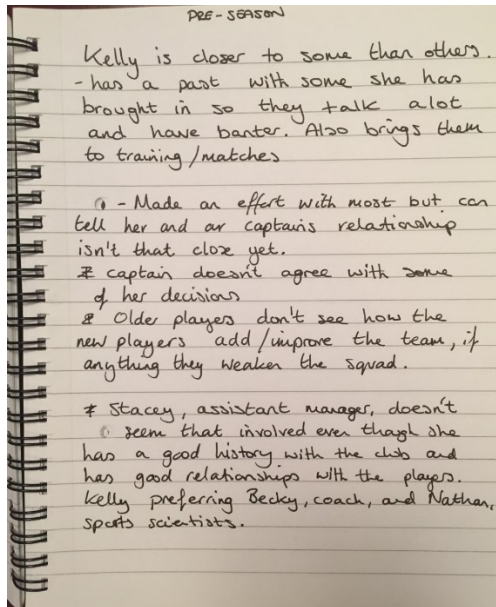 PRE-SEASON
Kelly is closer to some than others.
- has a past with some she has
brought in so they talk alot
and have banter. Also brings them
to training/matches
- Made an effort with most but can
tell her and our captains relationship
isn't that close yet.
* captain doesn't agree with some
of her decisions
* Older players don't see how the
new players add/improve the team, if
anything they weaken the squad.
* Stacey, assistant manager, doesn't
seem that involved even though she
has a good history with the club and
has good relationships with the players.
Kelly preferring Becky, coach, and Nathan,
sports scientists.